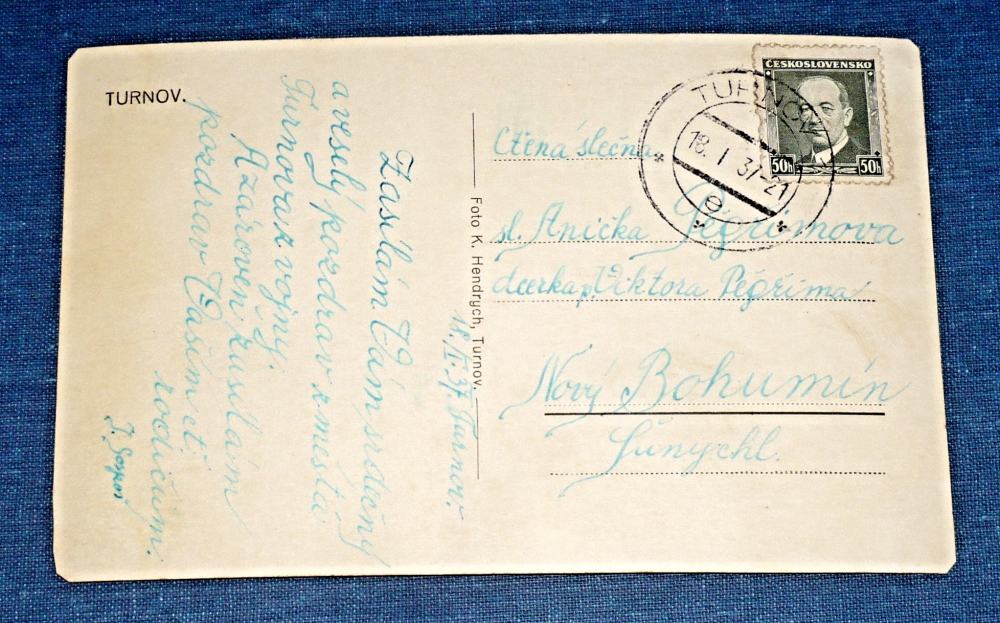 TURNOV.
18. I. 37. Turnov.
Zasílám Vám srdečný
a veselý pozdrav z města
Turnova z vojny.
A zároven zasílám
pozdrav Vašim ct.
rodičům.
J.
Foto K. Hendrych, Turnov.
ČESKOSLOVENSKO
50h 50h
TURNOV
18. I 37-21
e
Ctěná slečna
sl. Anička Pegřimova
dcerka p. Viktora Pegřima
Nový Bohumín
Šunychl.